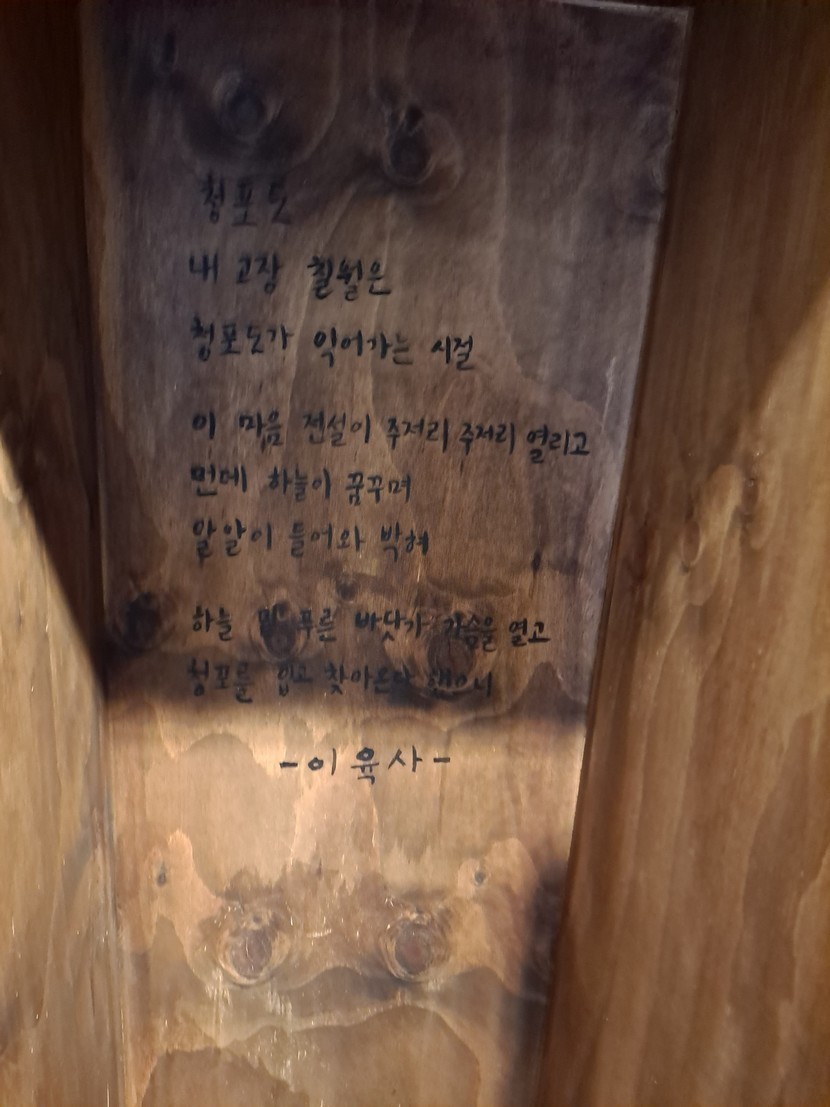 청포도
내 고장 칠월은
청포도가 익어가는 시절
이 마음 전설이 주저리 주저리 열리고
먼데 하늘이 꿈꾸며
알알이 들어와 박혀
하늘 밑 푸른 바닷가 가슴을 열고
청포를 입고 찾아온다 했으니
-이육사-